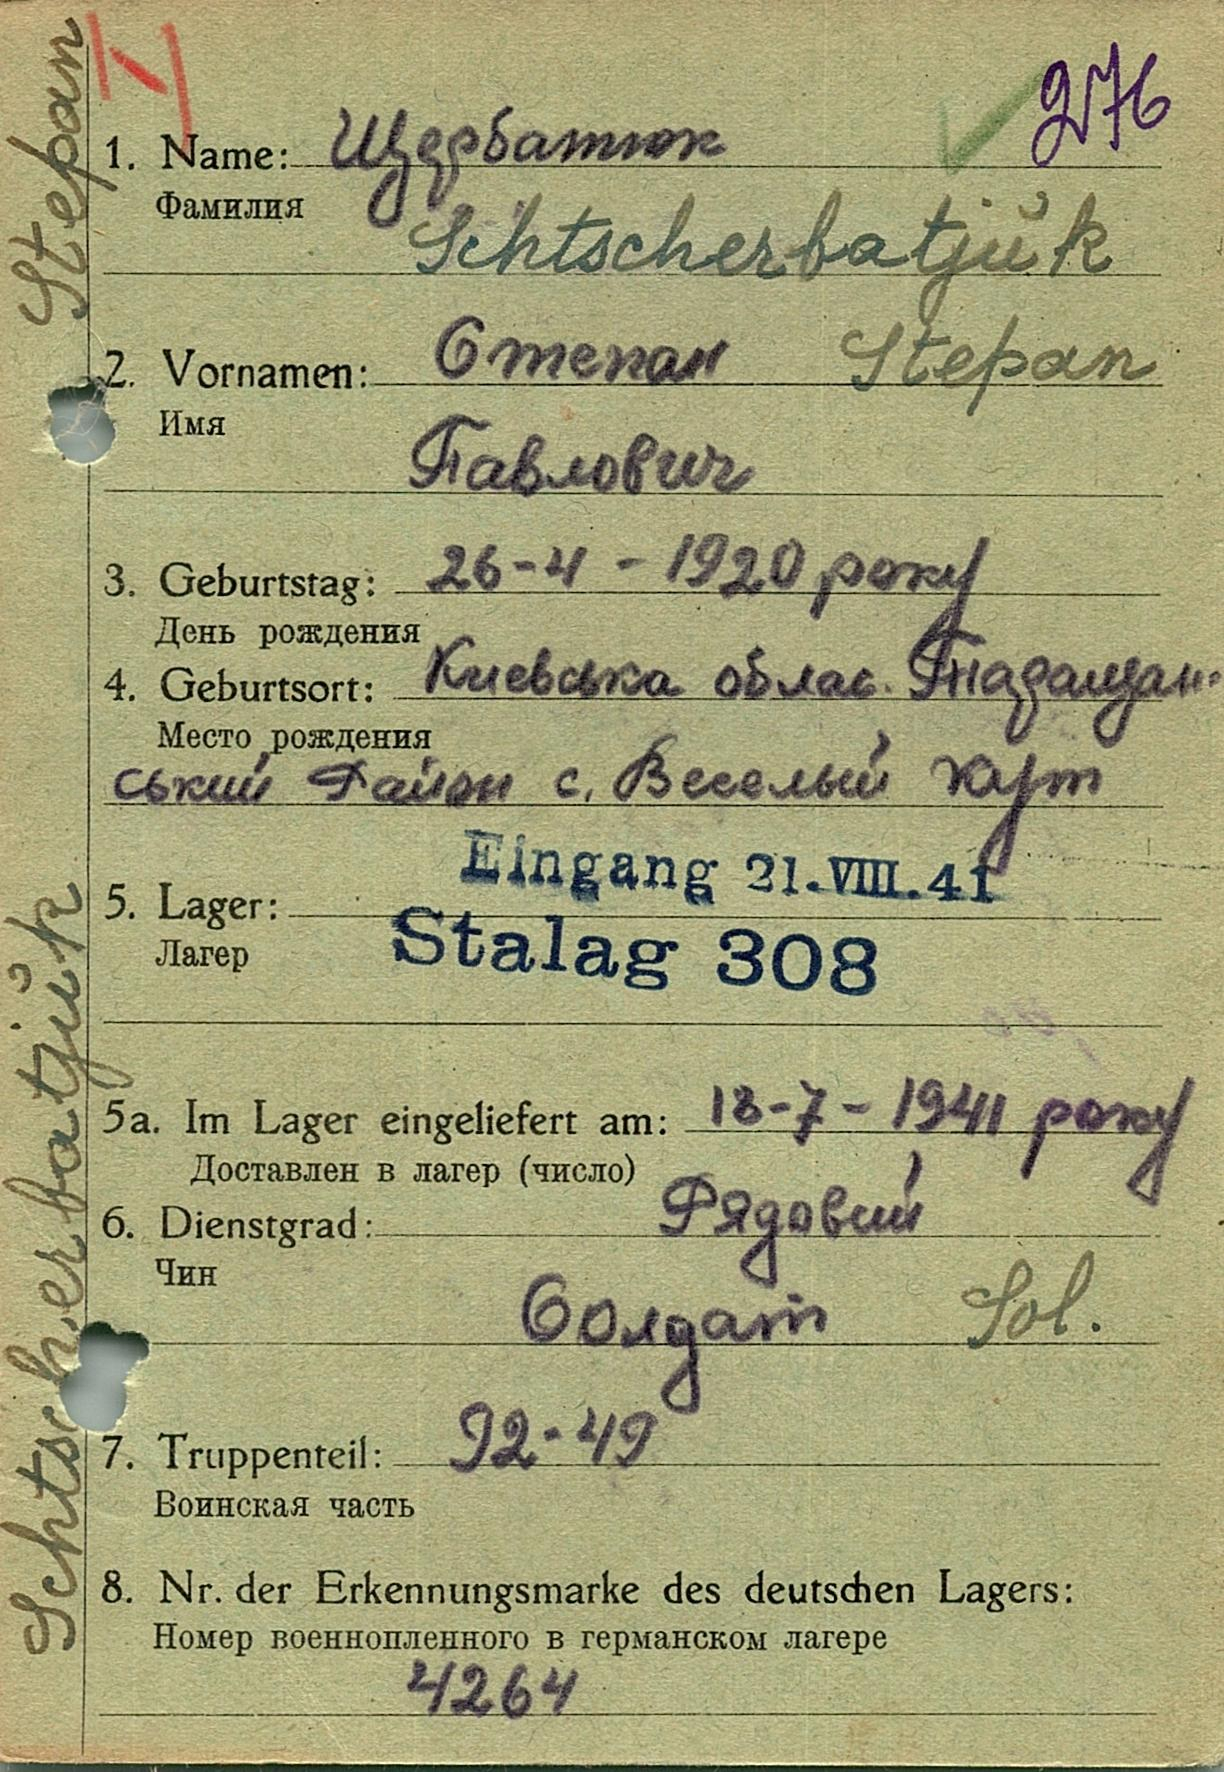 276
1. Name: Щербатюк
Фамилия
Schtscherbatjŭk
2. Vornamen: Степан Stepan
Имя
Павлович
3. Geburtstag: 26-4-1920 року
День рождения
4. Geburtsort: Киевська облас.
Место рождения
ський Район с. Веселый Кут
Eingang 21.VIII.41
5. Lager:
Лагер
Stalag 308
5a. Im Lager eingeliefert am: 13-7-1941 року
Доставлен в лагер (число)
6. Dienstgrad: Рядовый
Чин
Солдат Sol.
7. Truppenteil: 92-49
Воинская часть
8. Nr. der Erkennungsmarke des deutschen Lagers:
Номер военнопленного в германском лагере
4264
Schtscherbatjŭk Stepan